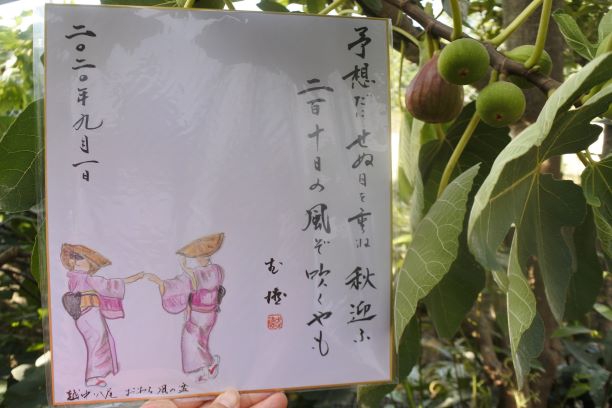 予想だにせぬ日を重ね 秋迎ふ
二百十日の風ぞ吹くやも
二〇二〇年九月一日
越中八尾 おわら風の盆